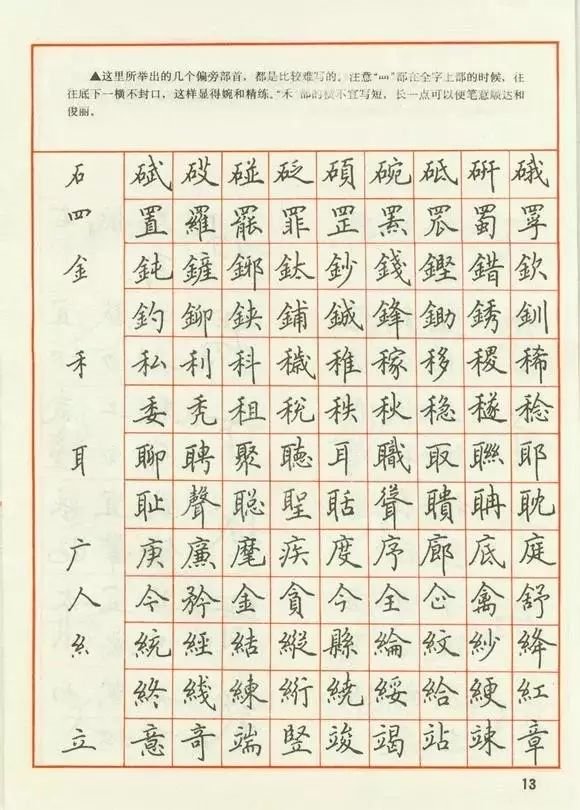 ▲这里所举出的几个偏旁部首，都是比较难写的。注意“罒”部在全字上部的时候，往
往底下一横不封口，这样显得婉和精练。“禾”部的横不宜写短，长一点可以使笔意顺达和
俊丽。
石 碔 砹 碰 砭 碩 碗 砥 硏 硪
罒 置 羅 罷 罪 罡 罴 罛 蜀 罦
金 鈍 鏟 鎯 鈦 鈔 錢 鏗 錯 欽
釣 鉚 鋏 鋪 鋮 鋒 鋤 銹 釧
禾 私 利 科 穢 稚 稼 移 稷 稀
委 秃 租 稅 秩 秋 稳 稔
耳 聊 聘 聚 聽 耳 職 取 聯 耶
耻 聲 聪 聖 聒 聳 聵 聃 耽
广 庚 廉 麾 疾 度 序 廊 底 庭
人 今 矜 金 貪 今 全 企 禽 舒
糹 統 經 結 縱 縣 綸 紋 紗 絳
終 綫 練 絎 繞 綏 給 綆 紅
立 意 奇 端 竪 竣 竭 站 竦 章
13